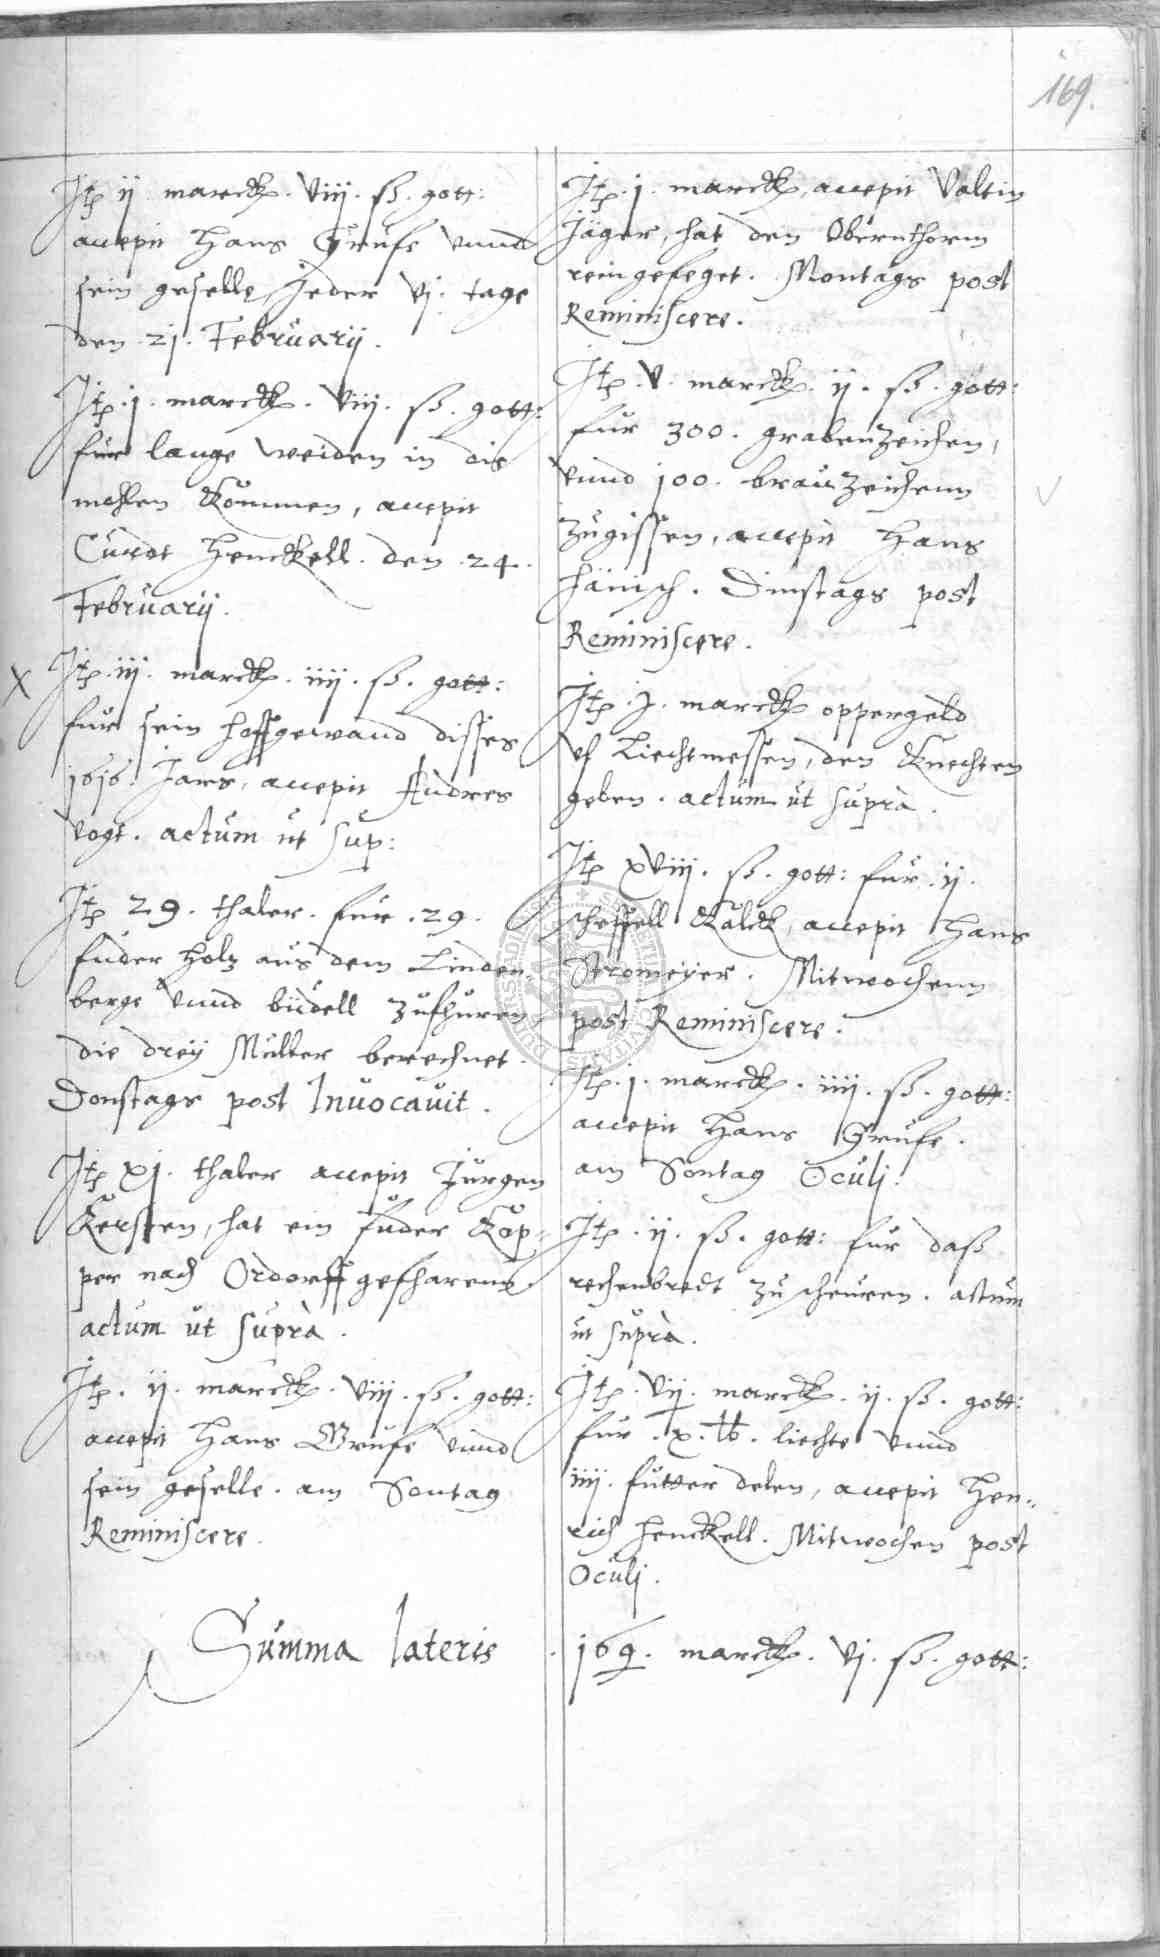 169.
Itē ij marck. viij. ß. gott:
accepit Hans Grufe vnnd
sein geselle, jeder vj. tage
den .21. Februarij.
Itē .j. marck. viij. ß. gott:
fur lange weiden in die
mohlen kommen, accepit
Curdt Henckell. den .24.
Februarij.
X Itē .iij. marck. iiij. ß. gott:
fur sein hoffgewand disses
1616. Jars, accepit Andres
Vogt. actum ut sup:
Itē 29. thaler. fur .29.
fuder holz aus dem Linden-
berge vnnd büdell zufhuren,
die drey Müller berechnet.
Donstags post Inuocauit.
Itē xj. thaler accepit Jürgen
Kersten, hat ein fuder Kop-
per nach Ordorff gefharenn.
actum ut supra.
Itē. ij. marck. viij. ß. gott:
accepit Hans Grufe vnnd
sein geselle. am Sontag
Reminiscere.
Itē .j. marck, accepit Valtin
Jäger, hat den Obernthorm
rein gefeget. Montags post
Reminiscere.
Itē .v. marck. ij. ß. gott:
fur 300. grabenzeichen,
vnnd 100. brauzeichenn
zugissen, accepit Hans
Jänisch. Dinstags post
Reminiscere.
Itē .j. marck oppergeld
vf Liechtmessen, den Knechten
geben. actum ut supra.
Itē xviij. ß. gott: fur .ij.
scheffell Kalck, accepit Hans
Stromeyer. Mitwochenn
post Reminiscere.
Itē .j. marck. iiij. ß. gott:
accepit Hans Grufe.
am Sontag Oculj.
Itē .ij. ß. gott: fur daß
rechenbredt zu scheuren. actum
ut supra.
Itē. vij. marck. ij. ß. gott:
fur .x. ℔. liechte vnnd
iiij. futter delen, accepit Hen-
rich Henckell. Mitwochen post
Oculj.
Summa lateris . 169. marck. vj. ß. gott: